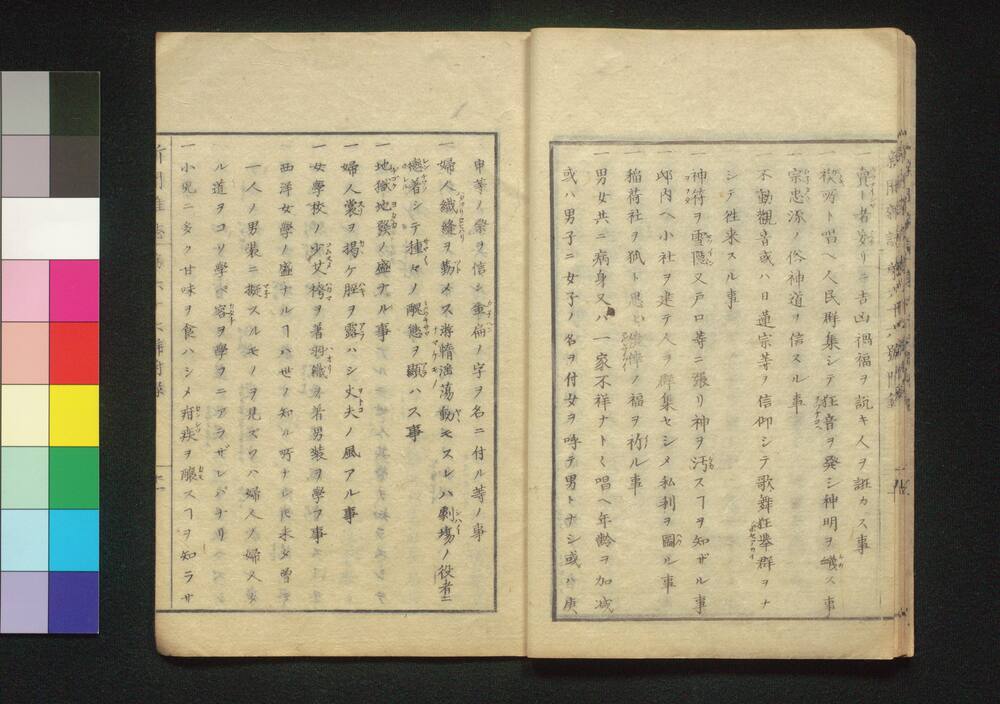 一賣卜者妄リニ吉凶禍福ヲ説キ人ヲ誑カス事
一祓所ト唱ヘ人民群集シテ狂音ヲ発シ神明ヲ瀆ス事
一宗忠派ノ俗神道ヲ信スル事
一不動觀音或ハ日蓮宗等ヲ信仰シテ歌舞狂挙群ヲナ
シテ往来スル事
一神符ヲ雪隠又戸口等ニ張リ神ヲ汚スヿヲ知ザル事
一邸内ヘ小社ヲ建テ人ヲ群集セシメ私利ヲ圖ル事
一稲荷社ヲ狐ト思ヒ僥倖ノ福ヲ祈ル事
一男女共ニ病身又ハ一家不祥ナト丶唱ヘ年齢ヲ加减
或ハ男子ニ女子ノ名ヲ付女ヲ呼テ男トナシ或ハ庚
申等ノ祟ヲ信シ金偏ノ字ヲ名ニ付ル等ノ事
一婦人織縫ヲ勤メス游惰淫蕩動モスレハ劇場ノ役者ニ
戀着シテ種々ノ醜態ヲ顕ハス事
一地獄地獄ノ盛ナル事
一婦人裳ヲ掲ケ脛ヲ露ハシ丈夫ノ風アル事
一女學校ノ少女袴ヲ着羽織ヲ着男装ヲ學フ事
西洋女學ノ盛ナルヿハ世ノ知ル所ナレ𪜈未タ曽テ
一人ノ男装ニ擬スルモノヲ見ズ夫ハ婦人ノ婦人タ
ル道ヲコソ學ベ容ヲ學フニアラザレバナリ
一小兒ニ多ク甘味ヲ食ハシメ疳疾ヲ醸スヿヲ知ラサ